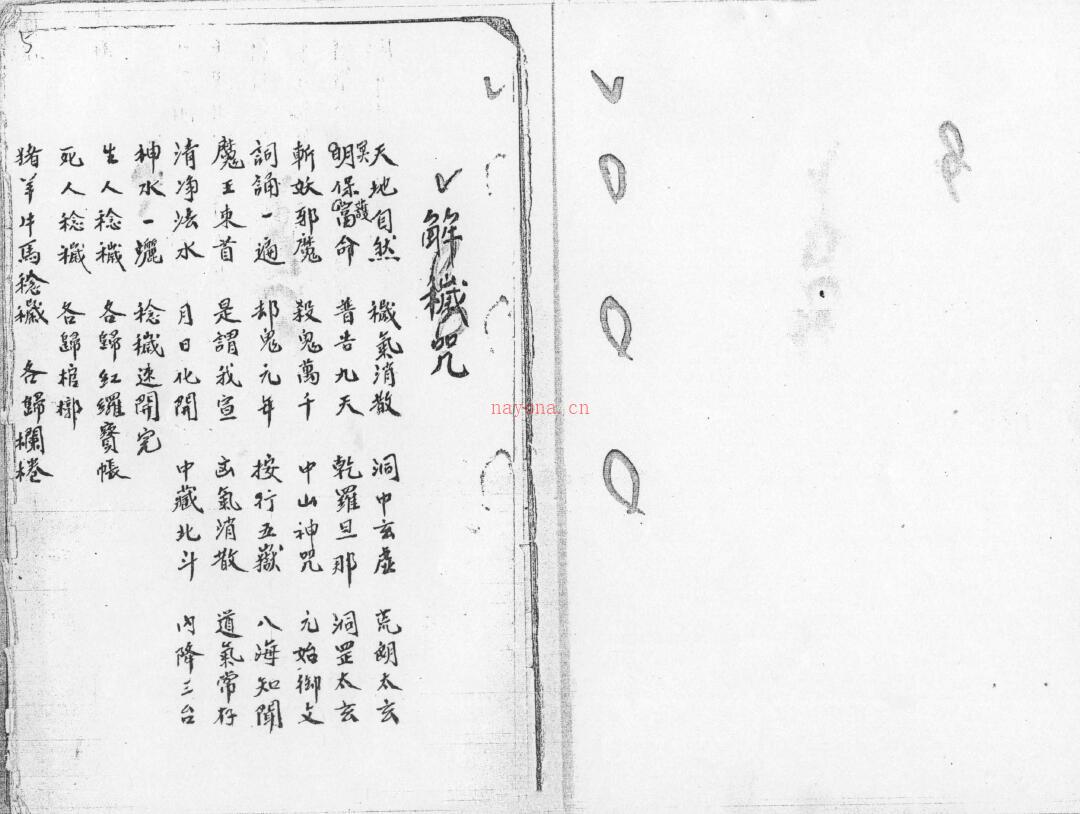 解穢咒
天地自然 穢氣消散 洞中玄虛 荒朗太玄
明保當命 普告九天 乾羅旦那 洞罡太玄
護
斬妖邪魔 殺鬼萬千 中山神咒 元始御文
詞誦一遍 却鬼元年 按行五嶽 八海知聞
魔王束首 是謂我宣 凶氣消散 道氣常存
清净法水 月日化開 中藏北斗 內降三台
神水一 稔穢速開完
生人稔穢 各歸紅羅寶帳
死人稔穢 各歸棺槨
猪羊牛馬稔穢 各歸欄棬
5
nayona.cn